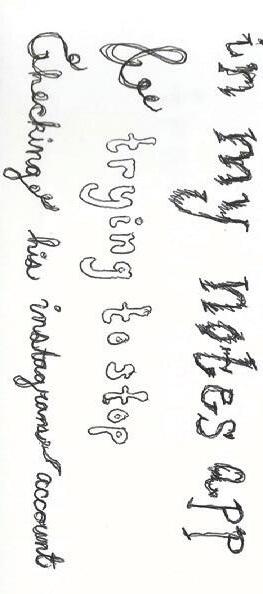 in my notes app
be trying to stop
Checking his instagram account